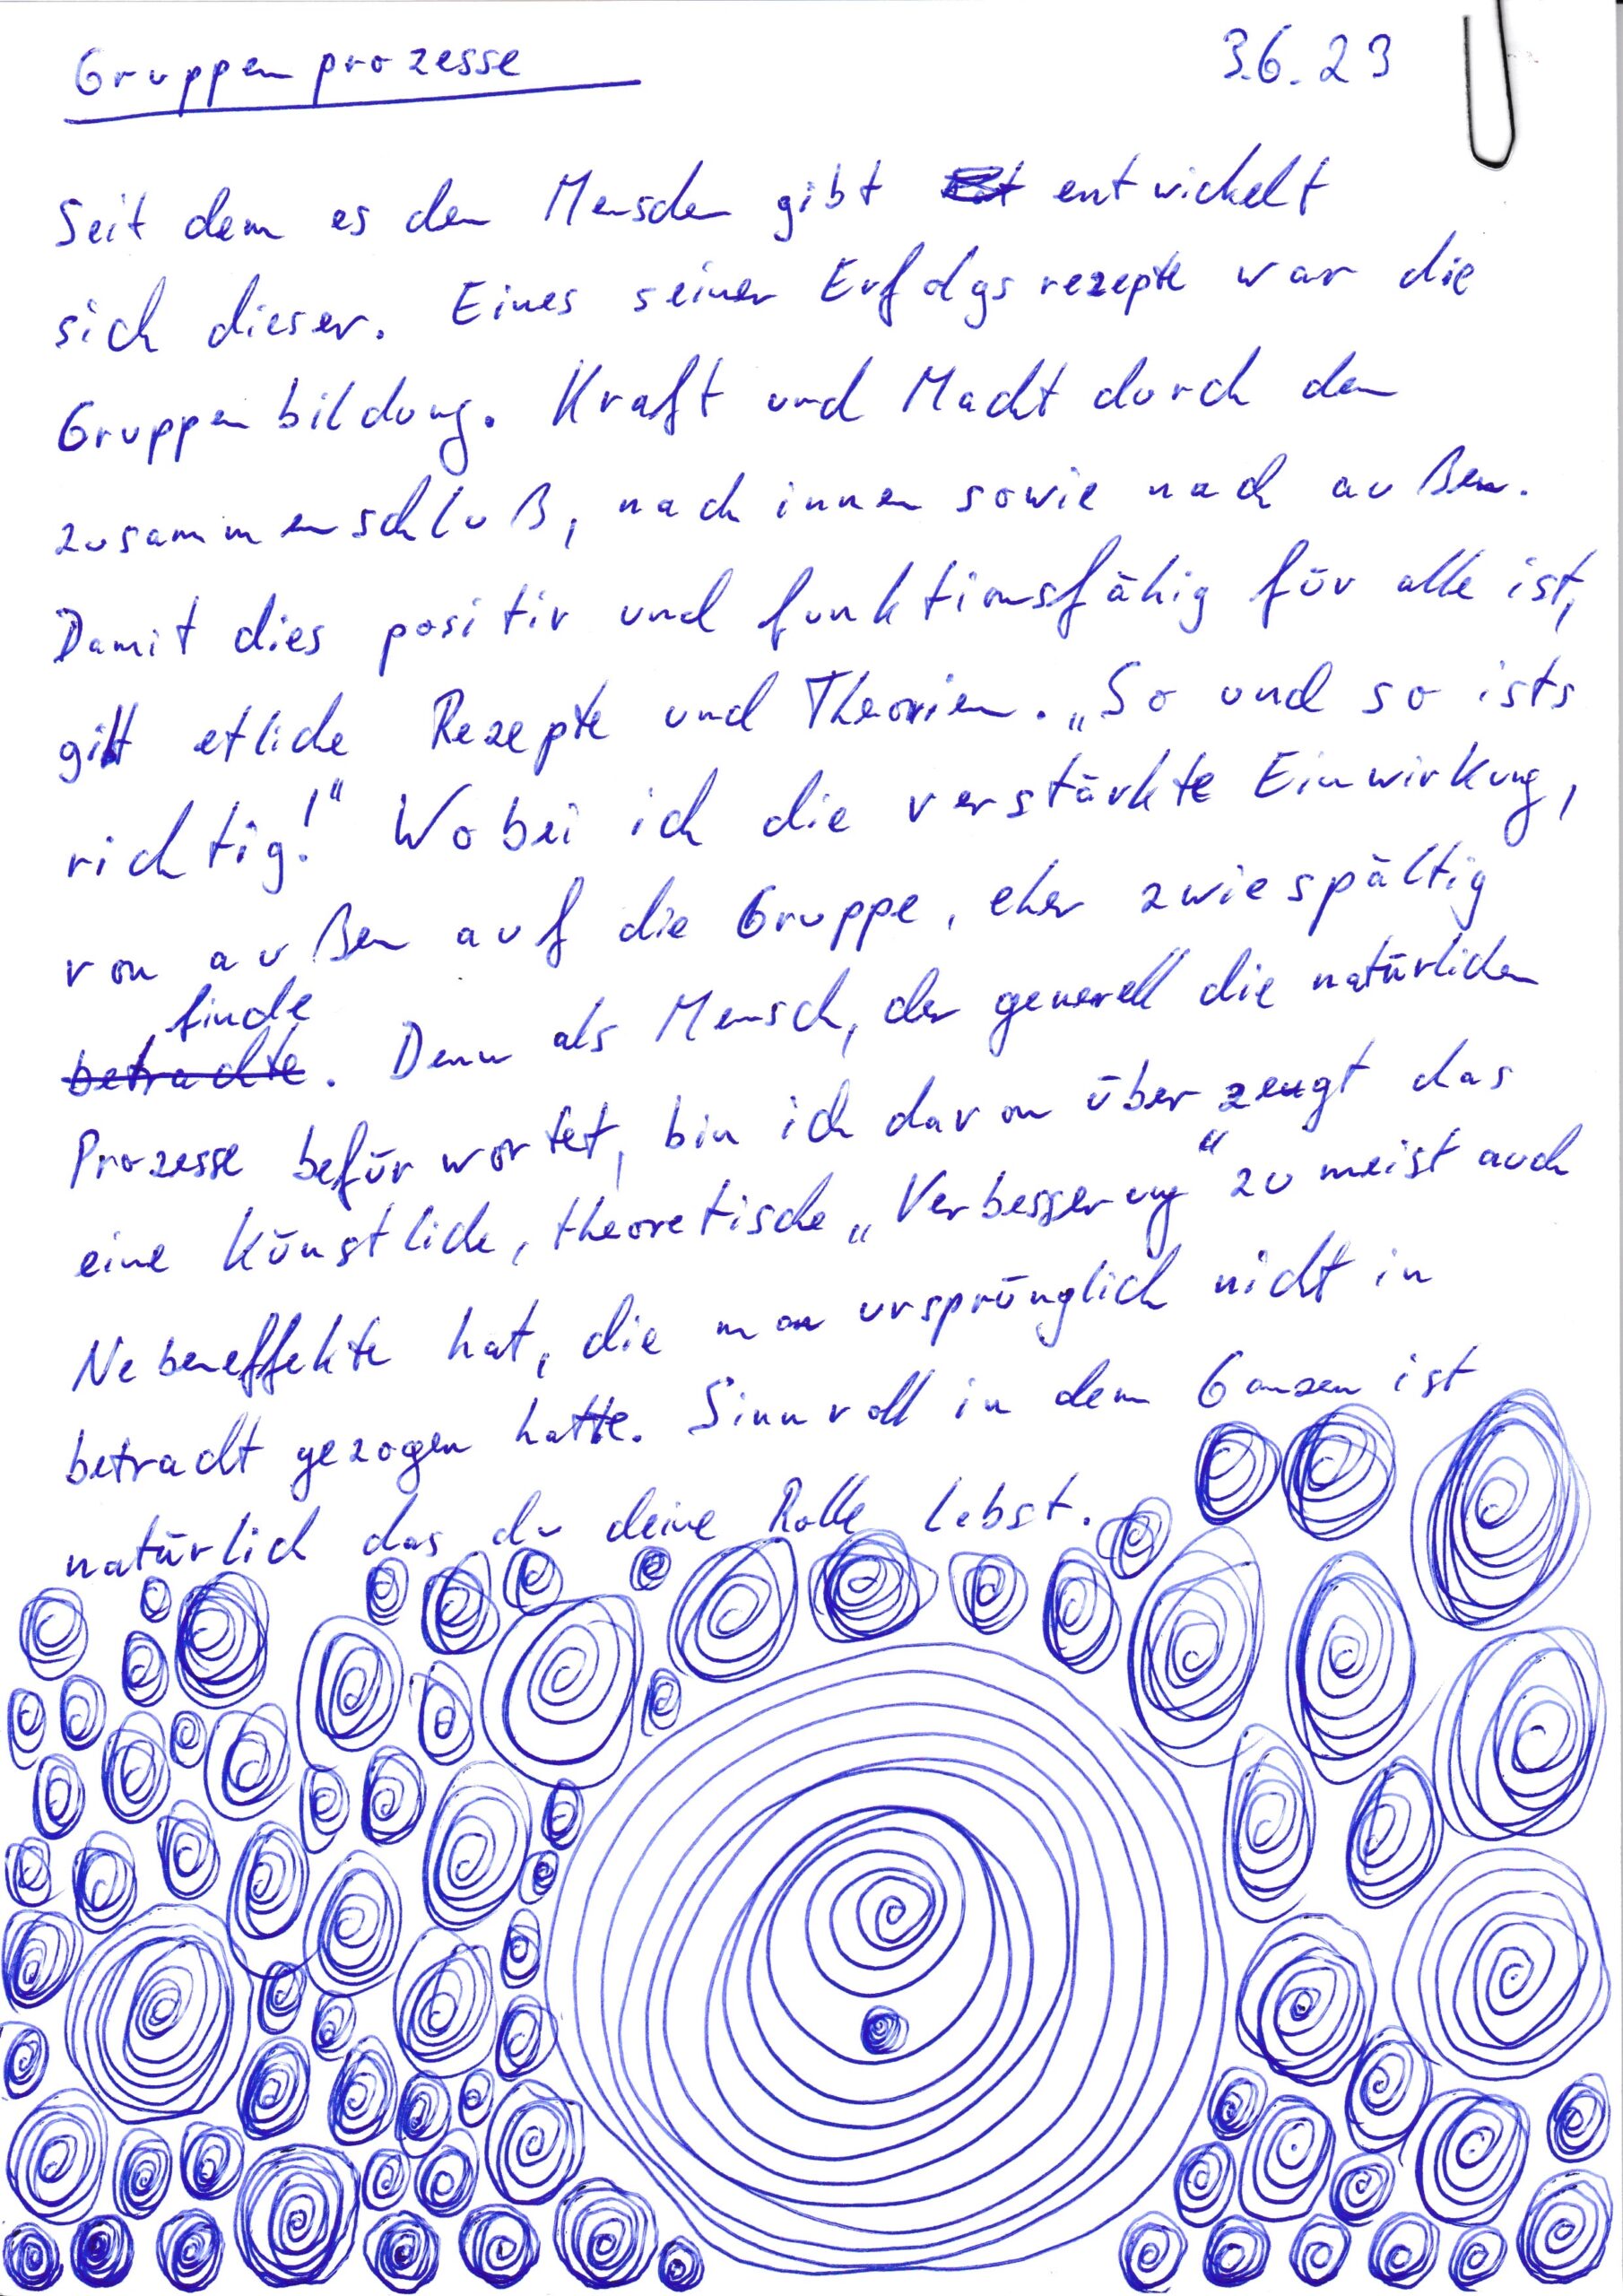 Gruppenprozesse 3.6.23
Seit dem es den Menschen gibt entwickelt
sich dieser. Eines seiner Erfolgsrezepte war die
Gruppenbildung. Kraft und Macht durch den
zusammenschluß, nach innen sowie nach außen.
Damit dies positiv und funktionsfähig für alle ist,
gibt etliche Rezepte und Theorien. „So und so ists
richtig!“ Wobei ich die verstärkte Einwirkung,
von außen auf die Gruppe, eher zwiespältig
finde
betrachte. Denn als Mensch, der generell die natürlichen
Prozesse befürwortet, bin ich davon überzeugt das
eine künstliche, theoretische „Verbesserung“ zu meist auch
Nebeneffekte hat, die man ursprünglich nicht in
betracht gezogen hatte. Sinnvoll in dem Ganzen ist
natürlich das du deine Rolle lebst.